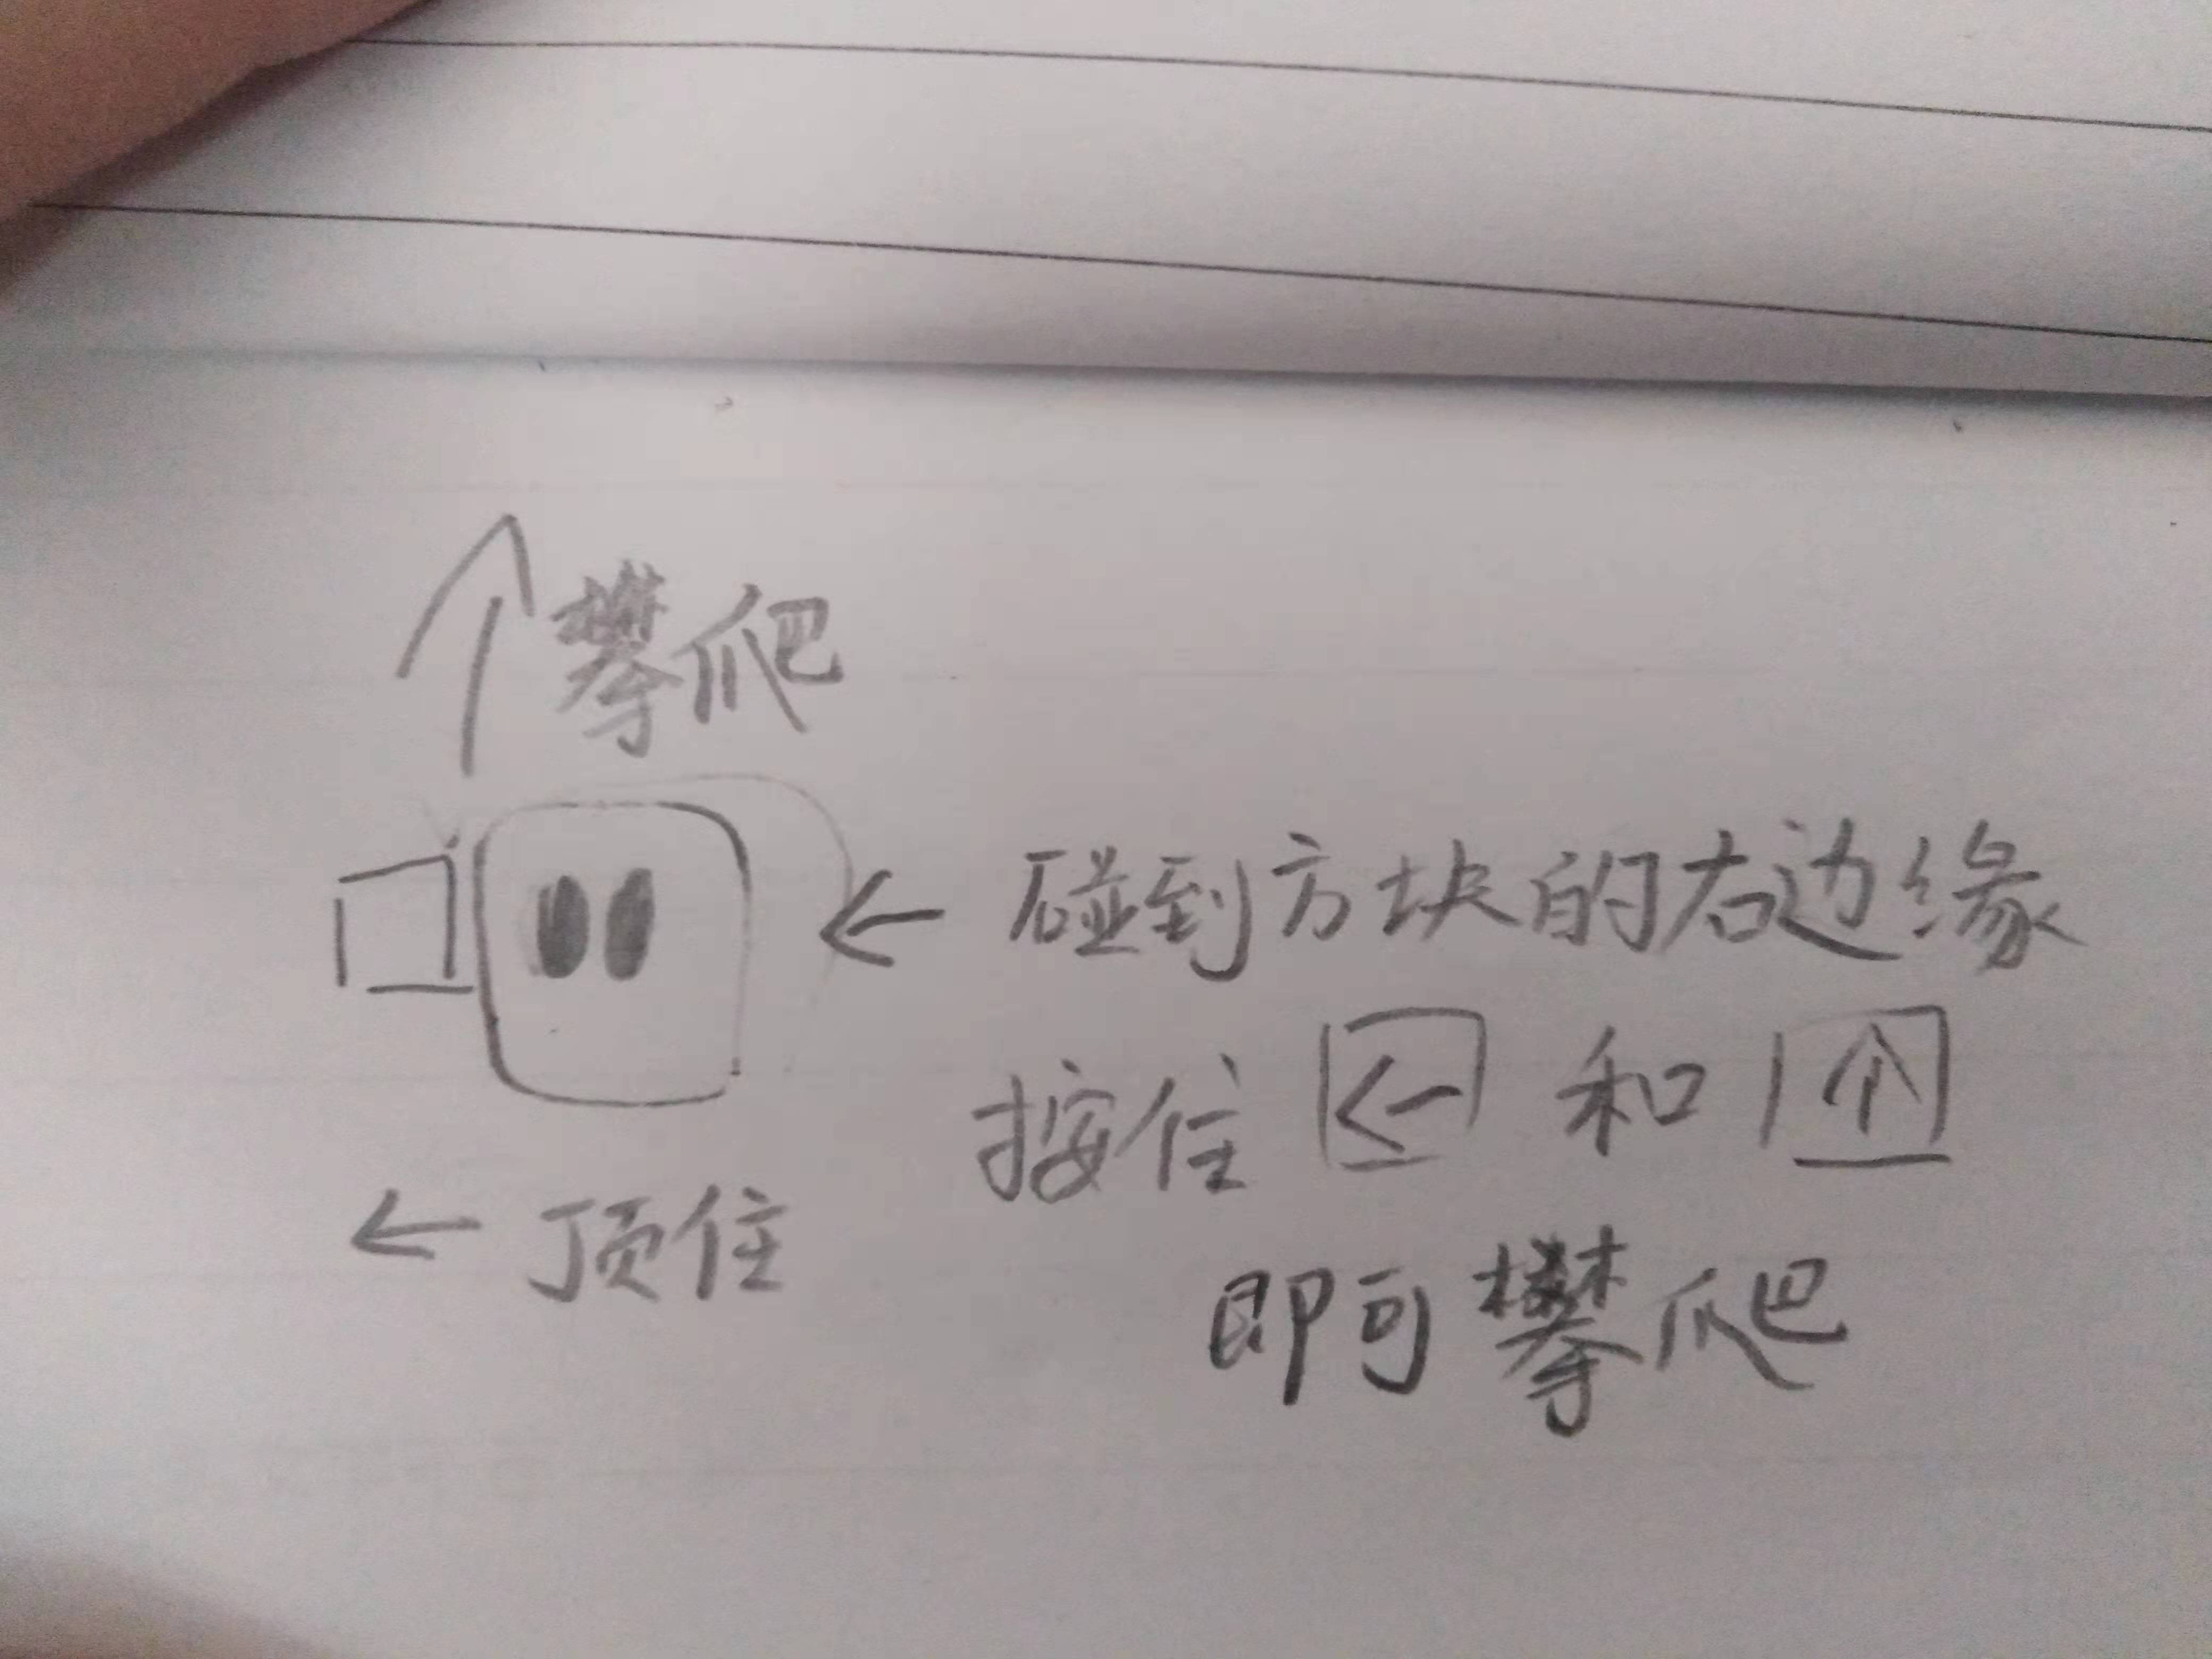 ↑攀爬
← 碰到方块的右边缘
按住 ← 和 ↑
← 顶住
即可攀爬